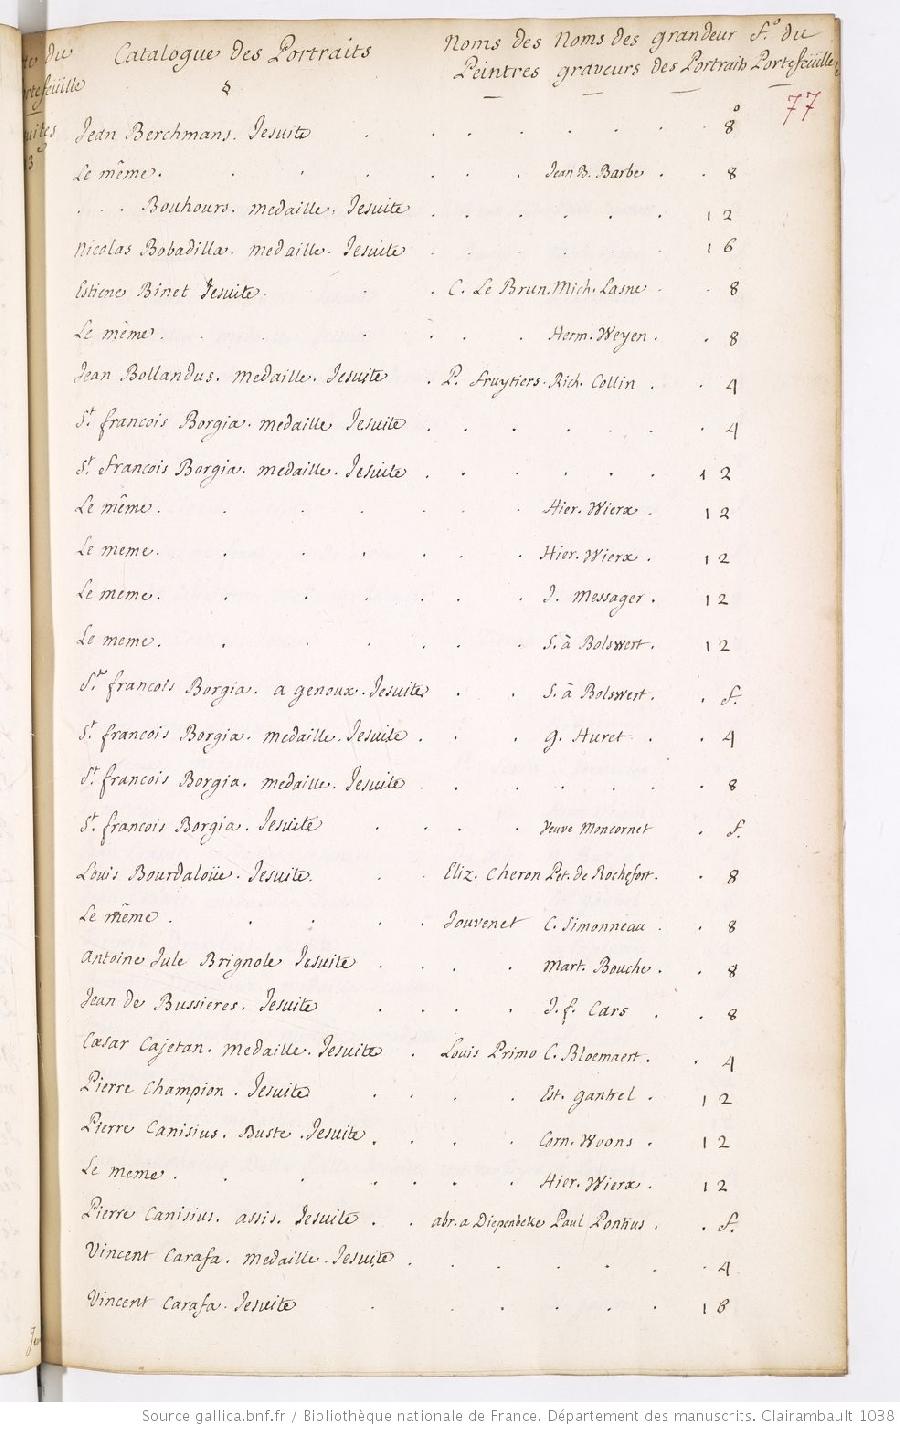 Catalogue des Portraits Noms des Peintres Noms des graveurs grandeur des Portraits f.º du Portefeüille
77
Jean Berchmans. Jesuite 8º
Le même. Jean B. Barbe 8
Bouhours. medaille. Jesuite 12
Nicolas Bobadilla. medaille. Jesuite 16
Estiene Binet Jesuite C. Le Brun. Mich. Lasne 8
Le même. Herm. Weyen. 8
Jean Bollandus. medaille. Jesuite P. fruytiers. Rich. Collin 4
St. françois Borgia. medaille Jesuite 4
St. françois Borgia. medaille. Jesuite 12
Le même. Hier. Wierx 12
Le meme. Hier. Wierx 12
Le meme. J. Messager. 12
Le meme. S. à Bolswert. 12
St. françois Borgia. a genoux. Jesuite S. à Bolswert. f.
St. françois Borgia. medaille. Jesuite g. Huret 4
St. françois Borgia. medaille. Jesuite 8
St. francois Borgia. Jesuite Veuve Moncornet f.
Louis Bourdaloüe. Jesuite. Eliz. Cheron Pet. de Rochefort. 8
Le même. Jouvenet C. Simonneau 8
Antoine Jule Brignole Jesuite Mart. Bouche. 8
Jean de Bussieres. Jesuite J. f. Cars 8
Cæsar Cajetan. medaille. Jesuite Louis Primo C. Bloemaert. 4
Pierre Champion. Jesuite Est. gantrel 12
Pierre Canisius. Buste. Jesuite. Corn. Woons 12
Le meme. Hier. Wierx 12
Pierre Canisius. assis. Jesuite abr. a Diepenbeke Paul Pontius f.
Vincent Carafa. medaille. Jesuite 4
Vincent Carafa. Jesuite 18
Source gallica.bnf.fr / Bibliothèque nationale de France. Département des manuscrits. Clairambault 1038